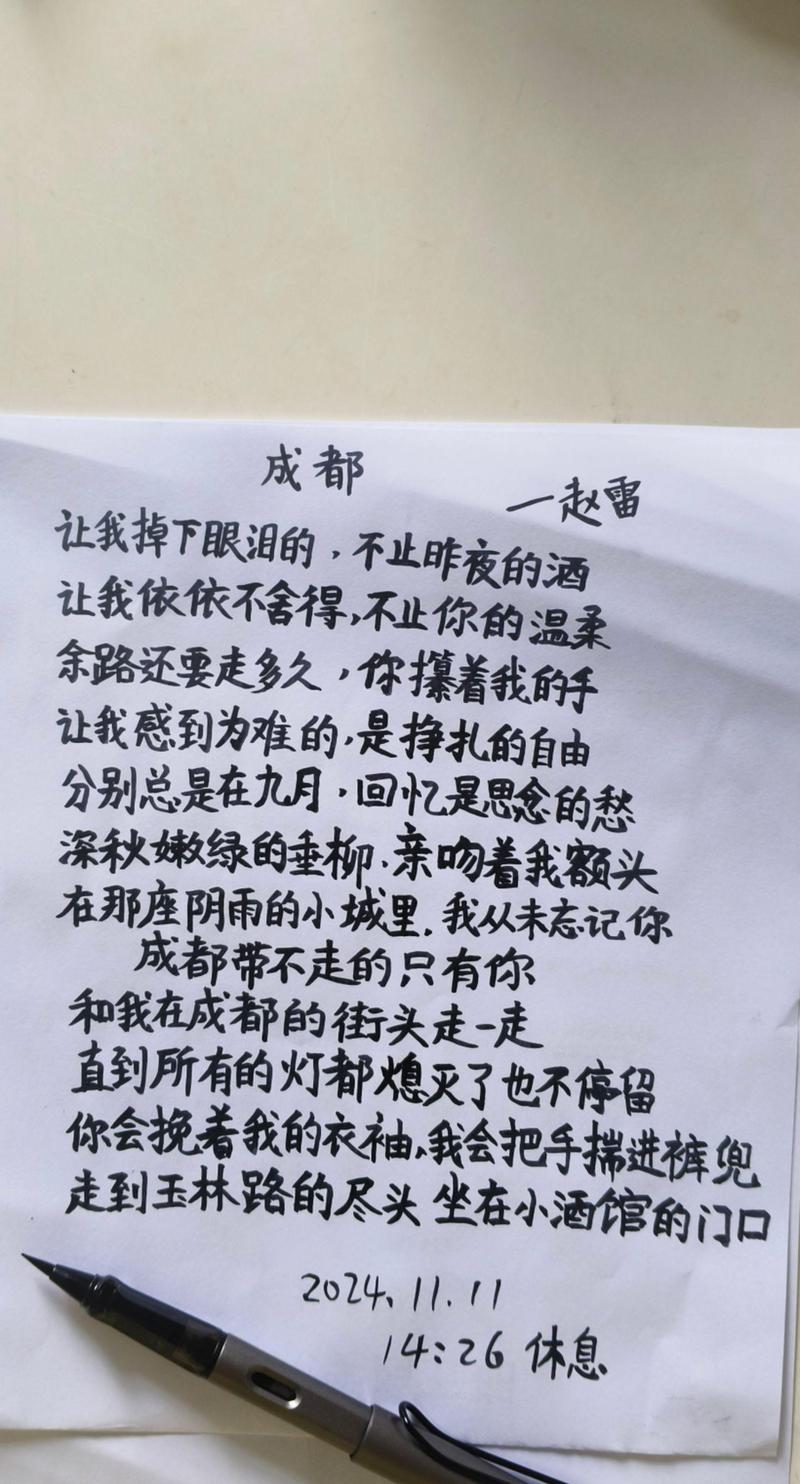 成都
—赵雷
让我掉下眼泪的，不止昨夜的酒
让我依依不舍得，不止你的温柔
余路还要走多久，你攥着我的手
让我感到为难的，是挣扎的自由
分别总是在九月，回忆是思念的愁
深秋嫩绿的垂柳，亲吻着我额头
在那座阴雨的小城里，我从未忘记你
成都带不走的只有你
和我在成都的街头走一走
直到所有的灯都熄灭了也不停留
你会挽着我的衣袖，我会把手揣进裤兜
走到玉林路的尽头 坐在小酒馆的门口
2024.11.11
14:26 休息